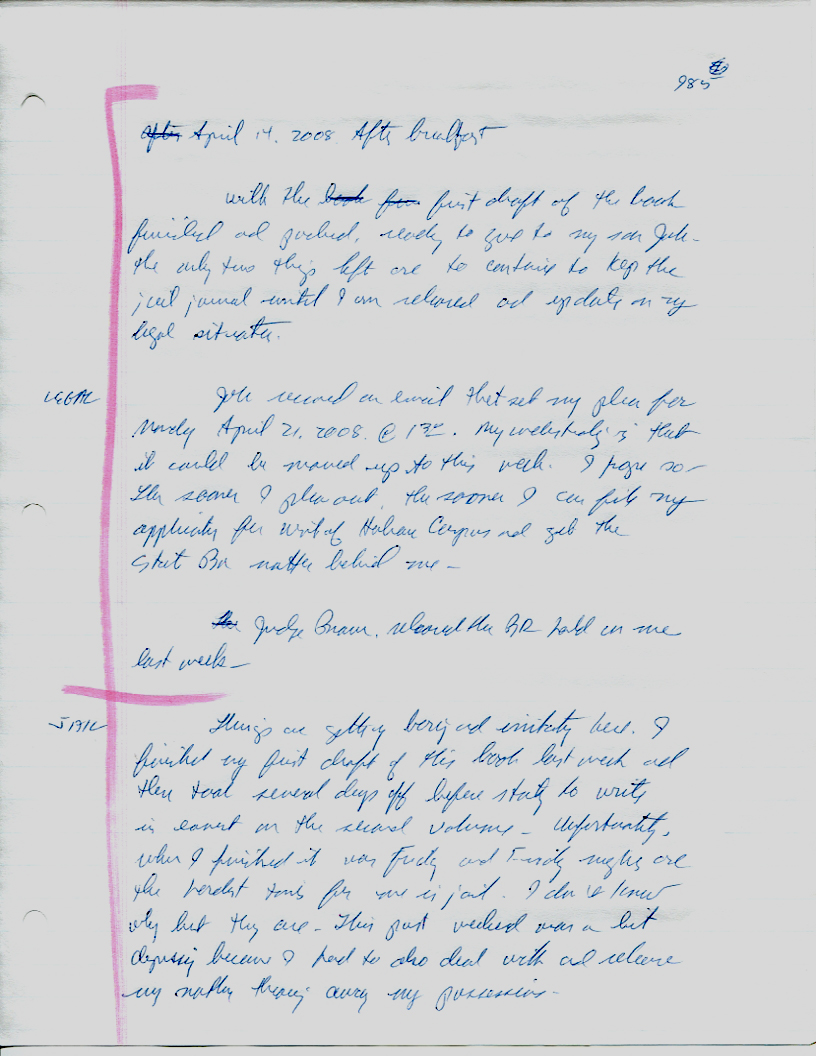 985
after April 14, 2008. After breakfast
with the book first draft of the book
finished and packed, ready to give to my son
the only two things left are to continue to keep the
jail journal until I am released and update on my
legal situation.
LEGAL
received an email that set my plea for
Monday April 21, 2008 @ 130. My understanding is that
it could be moved up to this week. I hope so -
The sooner I plea out, the sooner I can file my
application for writ of Habeas Corpus and get the
State Bar matter behind me -
The Judge released the hold on me
last week -
JAIL
Things are getting boring and irritating here. I
finished my first draft of this book last week and
then took several days off before starting to write
in earnest on the second volume - Unfortunately,
when I finished it was Friday and Friday nights are
the hardest times for me in jail. I don't know
why but they are - This past weekend was a bit
depressing because I had to also deal with and release
my mother throwing away my possessions -